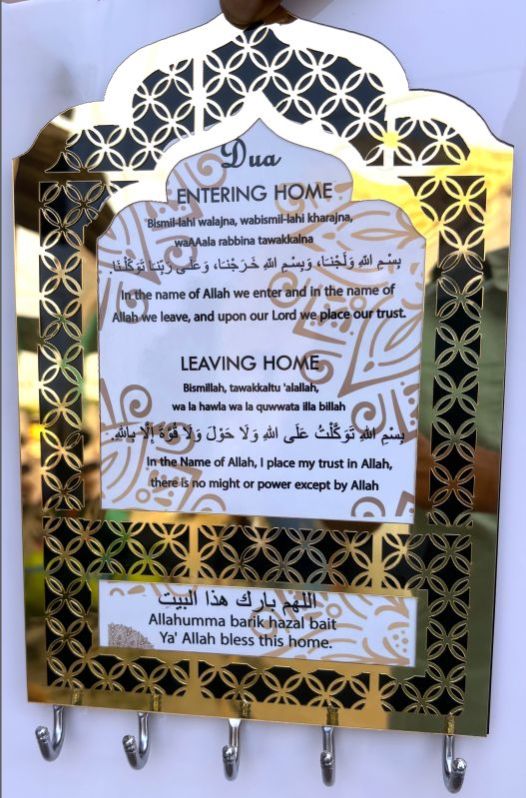 Dua
ENTERING HOME
Bismil-lahi walajna, wabismil-lahi kharajna,
waAAala rabbina tawakkalna
بِسْمِ اللهِ وَلَجْنَا، وَبِسْمِ اللهِ خَرَجْنَا، وَعَلَى رَبِّنَا تَوَكَّلْنَا
In the name of Allah we enter and in the name of
Allah we leave, and upon our Lord we place our trust.
LEAVING HOME
Bismillah, tawakkaltu 'alallah,
wa la hawla wa la quwwata illa billah
بِسْمِ اللهِ تَوَكَّلْتُ عَلَى اللهِ وَلَا حَوْلَ وَلَا قُوَّةَ إِلَّا بِاللهِ
In the Name of Allah, I place my trust in Allah,
there is no might or power except by Allah
اللهم بارك هذا البيت
Allahumma barik hazal bait
Ya' Allah bless this home.